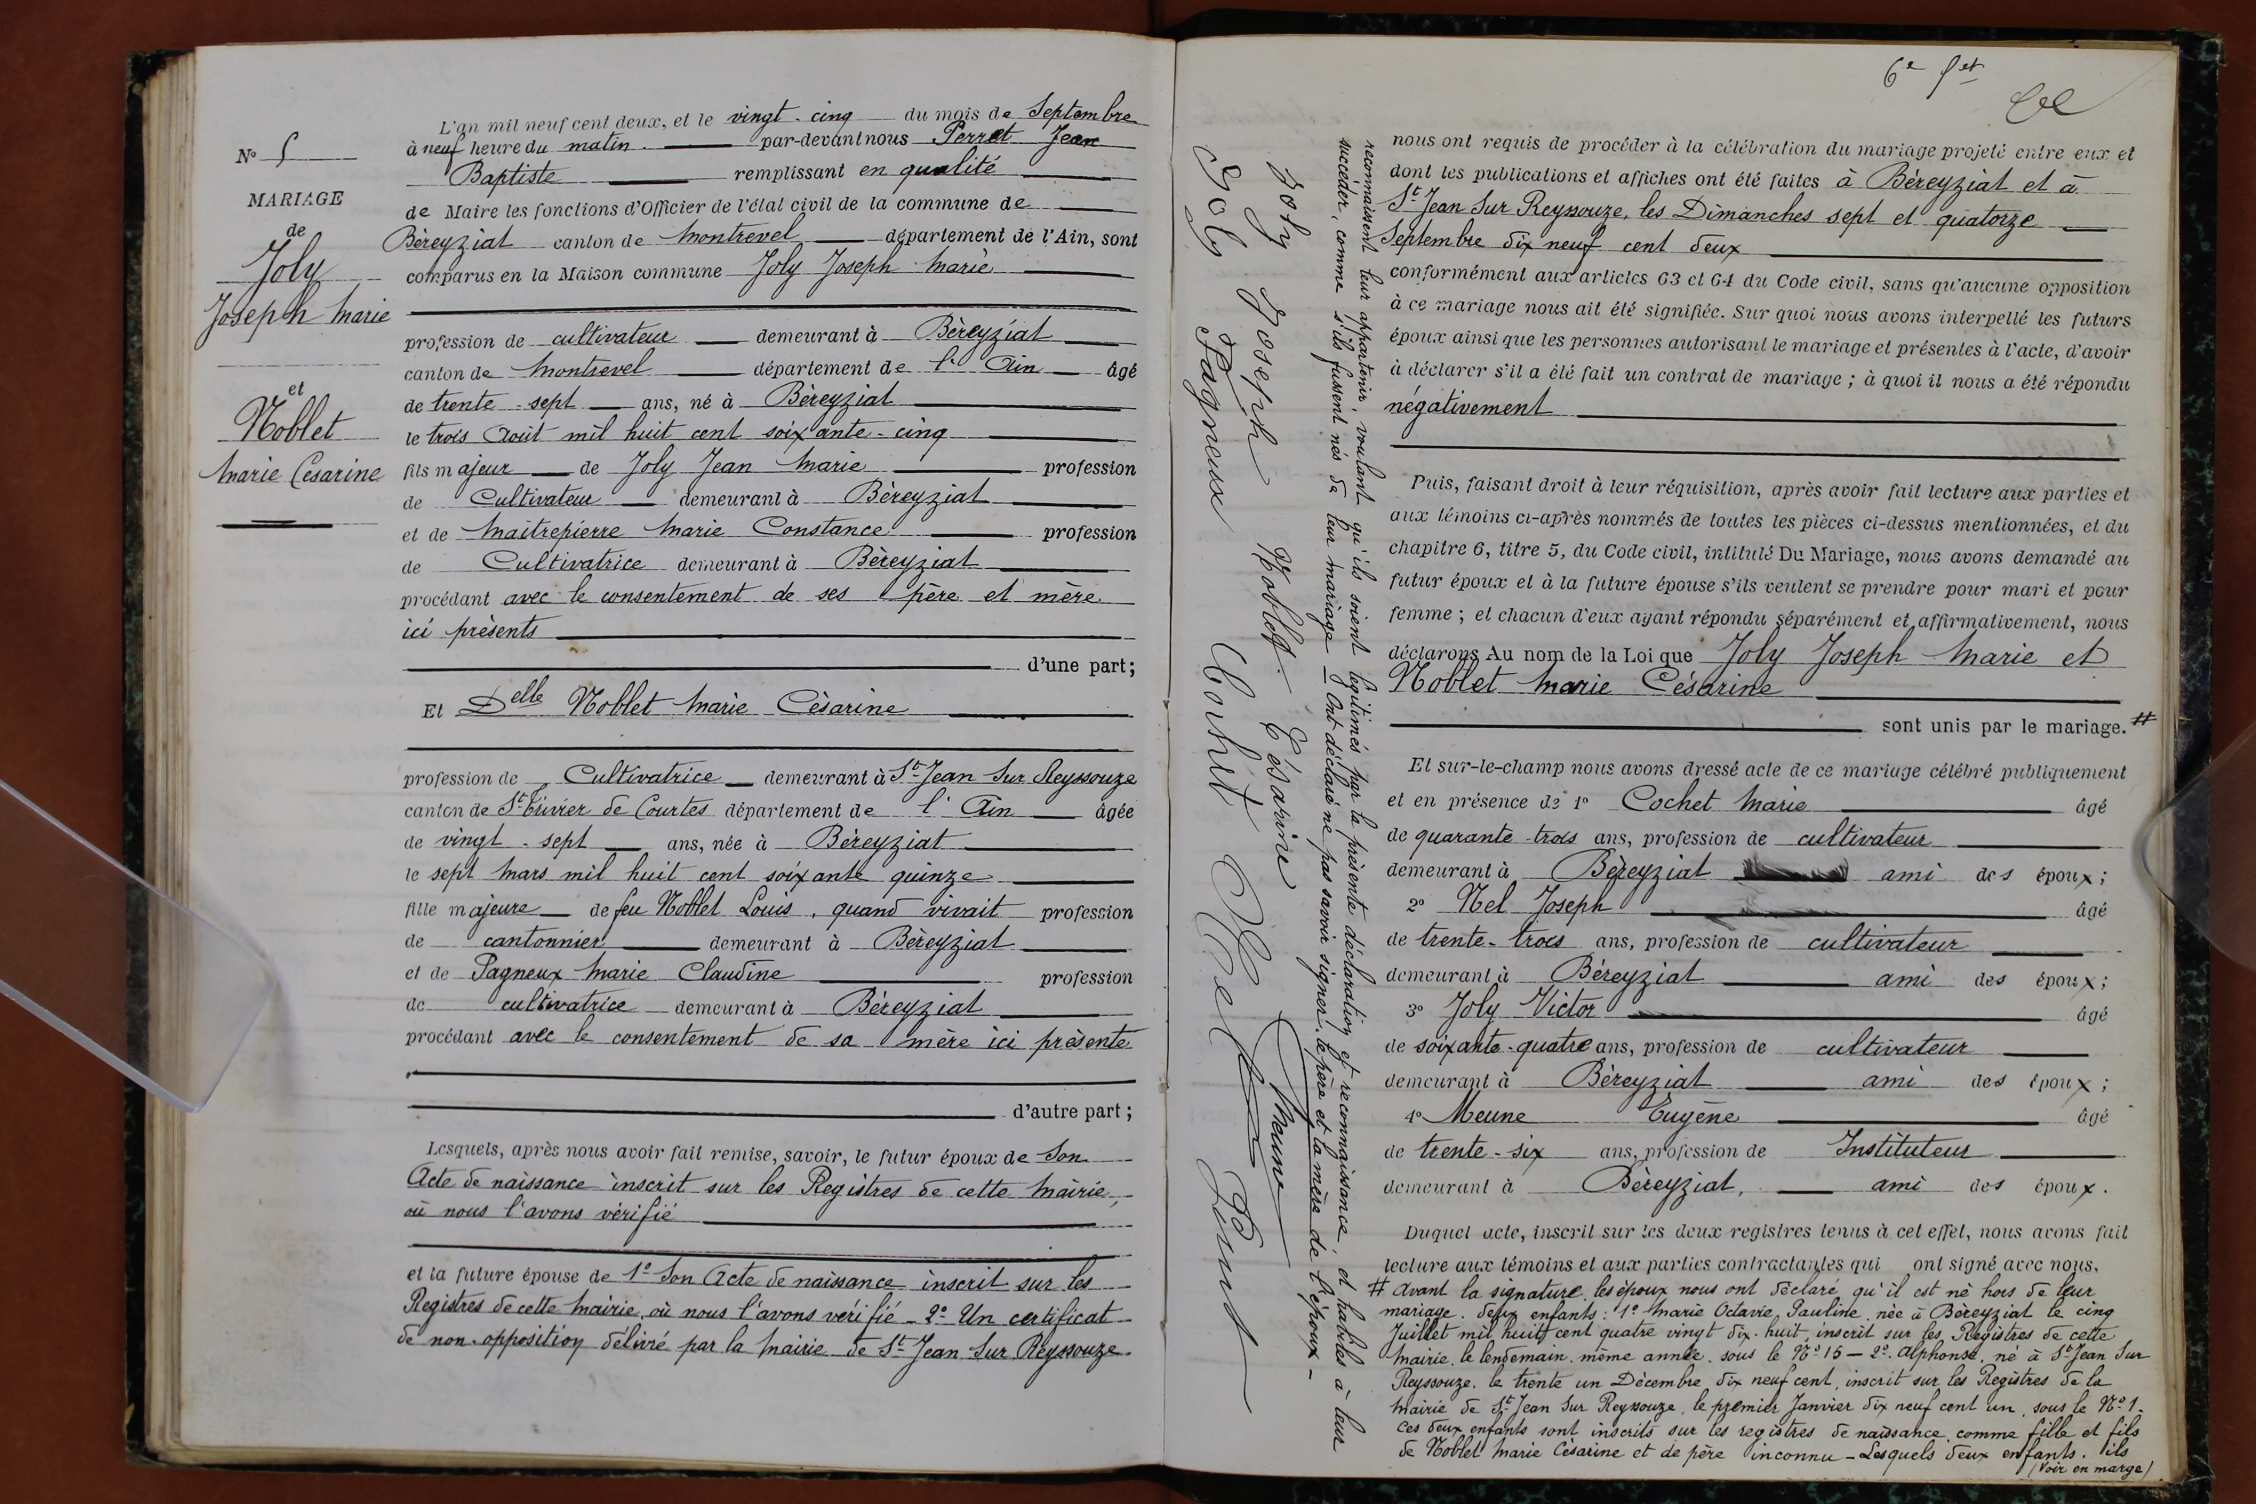 N° 5
MARIAGE
de
Joly
Joseph Marie
et
Noblet
Marie Césarine
L'an mil neuf cent deux, et le vingt-cinq du mois de Septembre
à neuf heure du matin. par-devant nous Perret Jean
Baptiste remplissant en qualité
de Maire les fonctions d'Officier de l'état civil de la commune de
Béreyziat canton de Montrevel département de l'Ain, sont
comparus en la Maison commune Joly Joseph Marie
profession de cultivateur demeurant à Béreyziat
canton de Montrevel département de l'Ain âgé
de trente-sept ans, né à Béreyziat
le trois Août mil huit cent soixante-cinq
fils majeur de Joly Jean Marie profession
de Cultivateur demeurant à Béreyziat
et de Maitrepierre Marie Constance profession
de Cultivatrice demeurant à Béreyziat
procédant avec le consentement de ses père et mère
ici présents
d'une part;
Et Delle Noblet Marie Césarine
profession de Cultivatrice demeurant à St Jean Sur Reyssouze
canton de St Trivier de Courtes département de l'Ain âgée
de vingt-sept ans, née à Béreyziat
le sept Mars mil huit cent soixante quinze
fille majeure de feu Noblet Louis, quand vivait profession
de cantonnier demeurant à Béreyziat
et de Pagneux Marie Claudine profession
de cultivatrice demeurant à Béreyziat
procédant avec le consentement de sa mère ici présente
d'autre part;
Lesquels, après nous avoir fait remise, savoir, le futur époux de Son
Acte de naissance inscrit sur les Registres de cette mairie,
où nous l'avons vérifié
et la future épouse de 1° Son Acte de naissance inscrit sur les
Registres de cette Mairie, où nous l'avons vérifié - 2° Un certificat
de non-opposition délivré par la Mairie de St Jean Sur Reyssouze.
6e fet
nous ont requis de procéder à la célébration du mariage projeté entre eux et
dont les publications et affiches ont été faites à Béreyziat et à
St Jean Sur Reyssouze, les Dimanches sept et quatorze
Septembre dix neuf cent deux
conformément aux articles 63 et 64 du Code civil, sans qu'aucune opposition
à ce mariage nous ait été signifiée. Sur quoi nous avons interpellé les futurs
époux ainsi que les personnes autorisant le mariage et présentes à l'acte, d'avoir
à déclarer s'il a été fait un contrat de mariage; à quoi il nous a été répondu
négativement
Puis, faisant droit à leur réquisition, après avoir fait lecture aux parties et
aux témoins ci-après nommés de toutes les pièces ci-dessus mentionnées, et du
chapitre 6, titre 5, du Code civil, intitulé Du Mariage, nous avons demandé au
futur époux et à la future épouse s'ils veulent se prendre pour mari et pour
femme; et chacun d'eux ayant répondu séparément et affirmativement, nous
déclarons Au nom de la Loi que Joly Joseph Marie et
Noblet Marie Césarine
sont unis par le mariage. #
Et sur-le-champ nous avons dressé acte de ce mariage célébré publiquement
et en présence de 1° Cochet Marie âgé
de quarante-trois ans, profession de cultivateur
demeurant à Béreyziat ami des époux;
2° Nel Joseph âgé
de trente-trois ans, profession de cultivateur
demeurant à Béreyziat ami des époux;
3° Joly Victor âgé
de soixante-quatre ans, profession de cultivateur
demeurant à Béreyziat ami des époux;
4° Meune Eugène âgé
de trente-six ans, profession de Instituteur
demeurant à Béreyziat, ami des époux.
Duquel acte, inscrit sur les deux registres tenus à cet effet, nous avons fait
lecture aux témoins et aux parties contractantes qui ont signé avec nous.
# Avant la signature, les époux nous ont déclaré qu'il est né hors de leur
mariage, deux enfants: 1° Marie Octavie, Pauline, née à Béreyziat le cinq
Juillet mil huit cent quatre vingt dix-huit, inscrit sur les Registres de cette
Mairie, le lendemain, même année, sous le N° 15 — 2° Alphonse, né à St Jean Sur
Reyssouze, le trente un Décembre dix neuf cent, inscrit sur les Registres de la
Mairie de St Jean Sur Reyssouze, le premier Janvier dix neuf cent un, sous le N° 1.
Ces deux enfants sont inscrits sur les registres de naissance comme fille et fils
de Noblet Marie Césarine et de père inconnu - Lesquels deux enfants. ils
(Voir en marge)
reconnaissent leur appartenir, voulant qu'ils soient légitimés par la présente déclaration et reconnaissance, et habiles à leur
succéder, comme s'ils fussent nés de leur mariage — Ont déclaré ne pas savoir signer, le père et la mère de l'époux -
Joly Joseph Noblet Césarine Meune
Joly Pagneux Cochet Nel J Perret